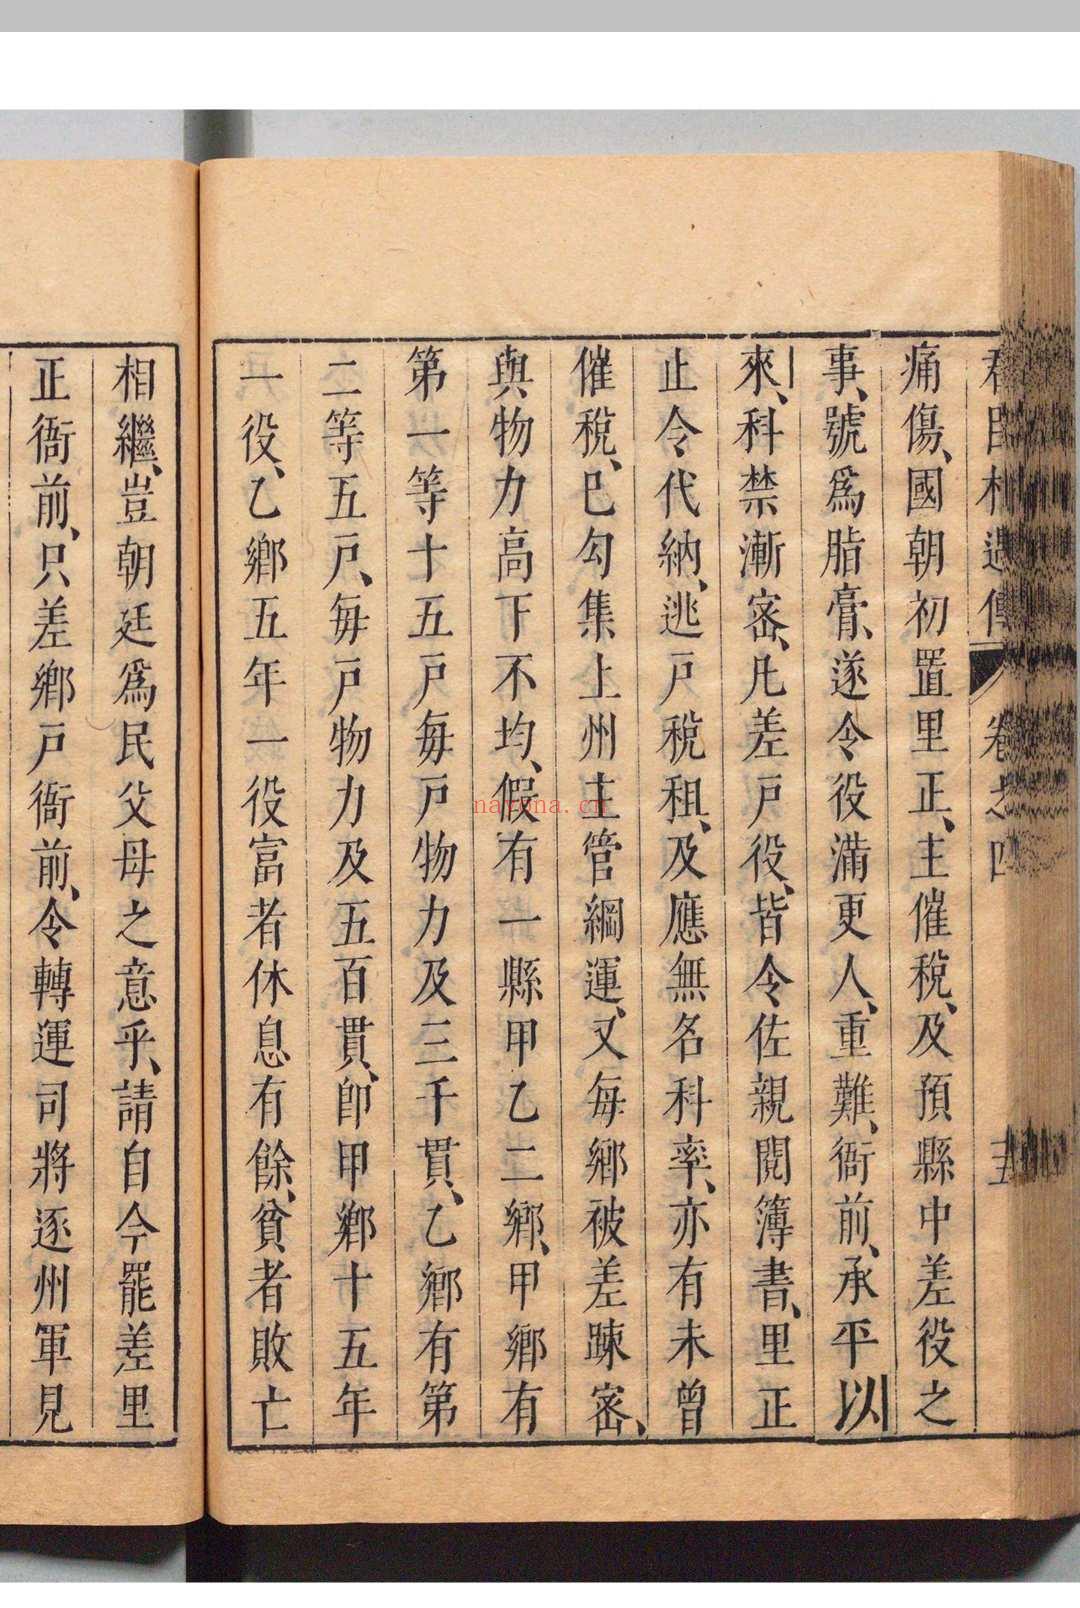 君臣相遇傳 卷之四
痛傷、國朝初置里正、主催稅、及預縣中差役之
事、號爲脂膏、遂令役滿更人、重難、衙前、承平以
來、科禁漸密、凡差戸役、皆令佐親閱簿書、里正
止令代納、逃戸稅租、及應無名科率、亦有未曾
催稅、已勾集上州主管綱運、又每鄉被差踈密、
與物力高下不均、假有一縣甲乙二鄉、甲鄉有
第一等十五戸每戸物力及三千貫、乙鄉有第
二等五戸、每戸物力及五百貫、卽甲鄉十五年
一役、乙鄉五年一役富者休息有餘、貧者敗亡
相繼、豈朝廷爲民父母之意乎、請自今罷差里
正衙前、只差鄉戸衙前、令轉運司將逐州軍見
nayona.cn